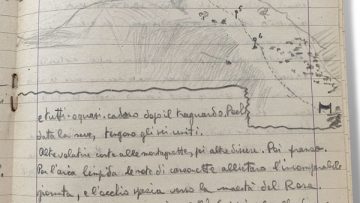 e tutti o quasi cadono dopo il traguardo. Poch
data la neve, tengono gli sci uniti.
Alte volatine conte alle montagnette, poi altre discese. Poi pranzo.
Per l'aria limpida le note di canzonette allietano l'incomparabile
giornata, e l'occhio spazia verso la maestà del Rosa.